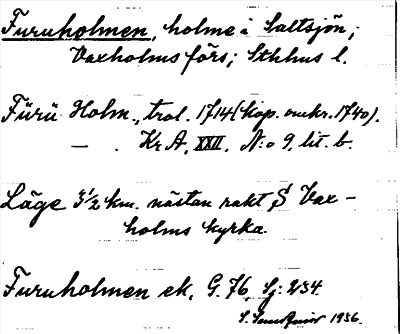 Furuholmen, holme i Saltsjön,
Vaxholms förs; Sthhus l.
Fürü Holm., trol. 1714 (kop. omkr. 1740).
— . Kr A, XXII, N:o 9, lit. b.
Läge 3 1/2 km. nästan rakt S Vax-
holms kyrka.
Furuholmen ek, G. 76, Sj: 234.
1936.